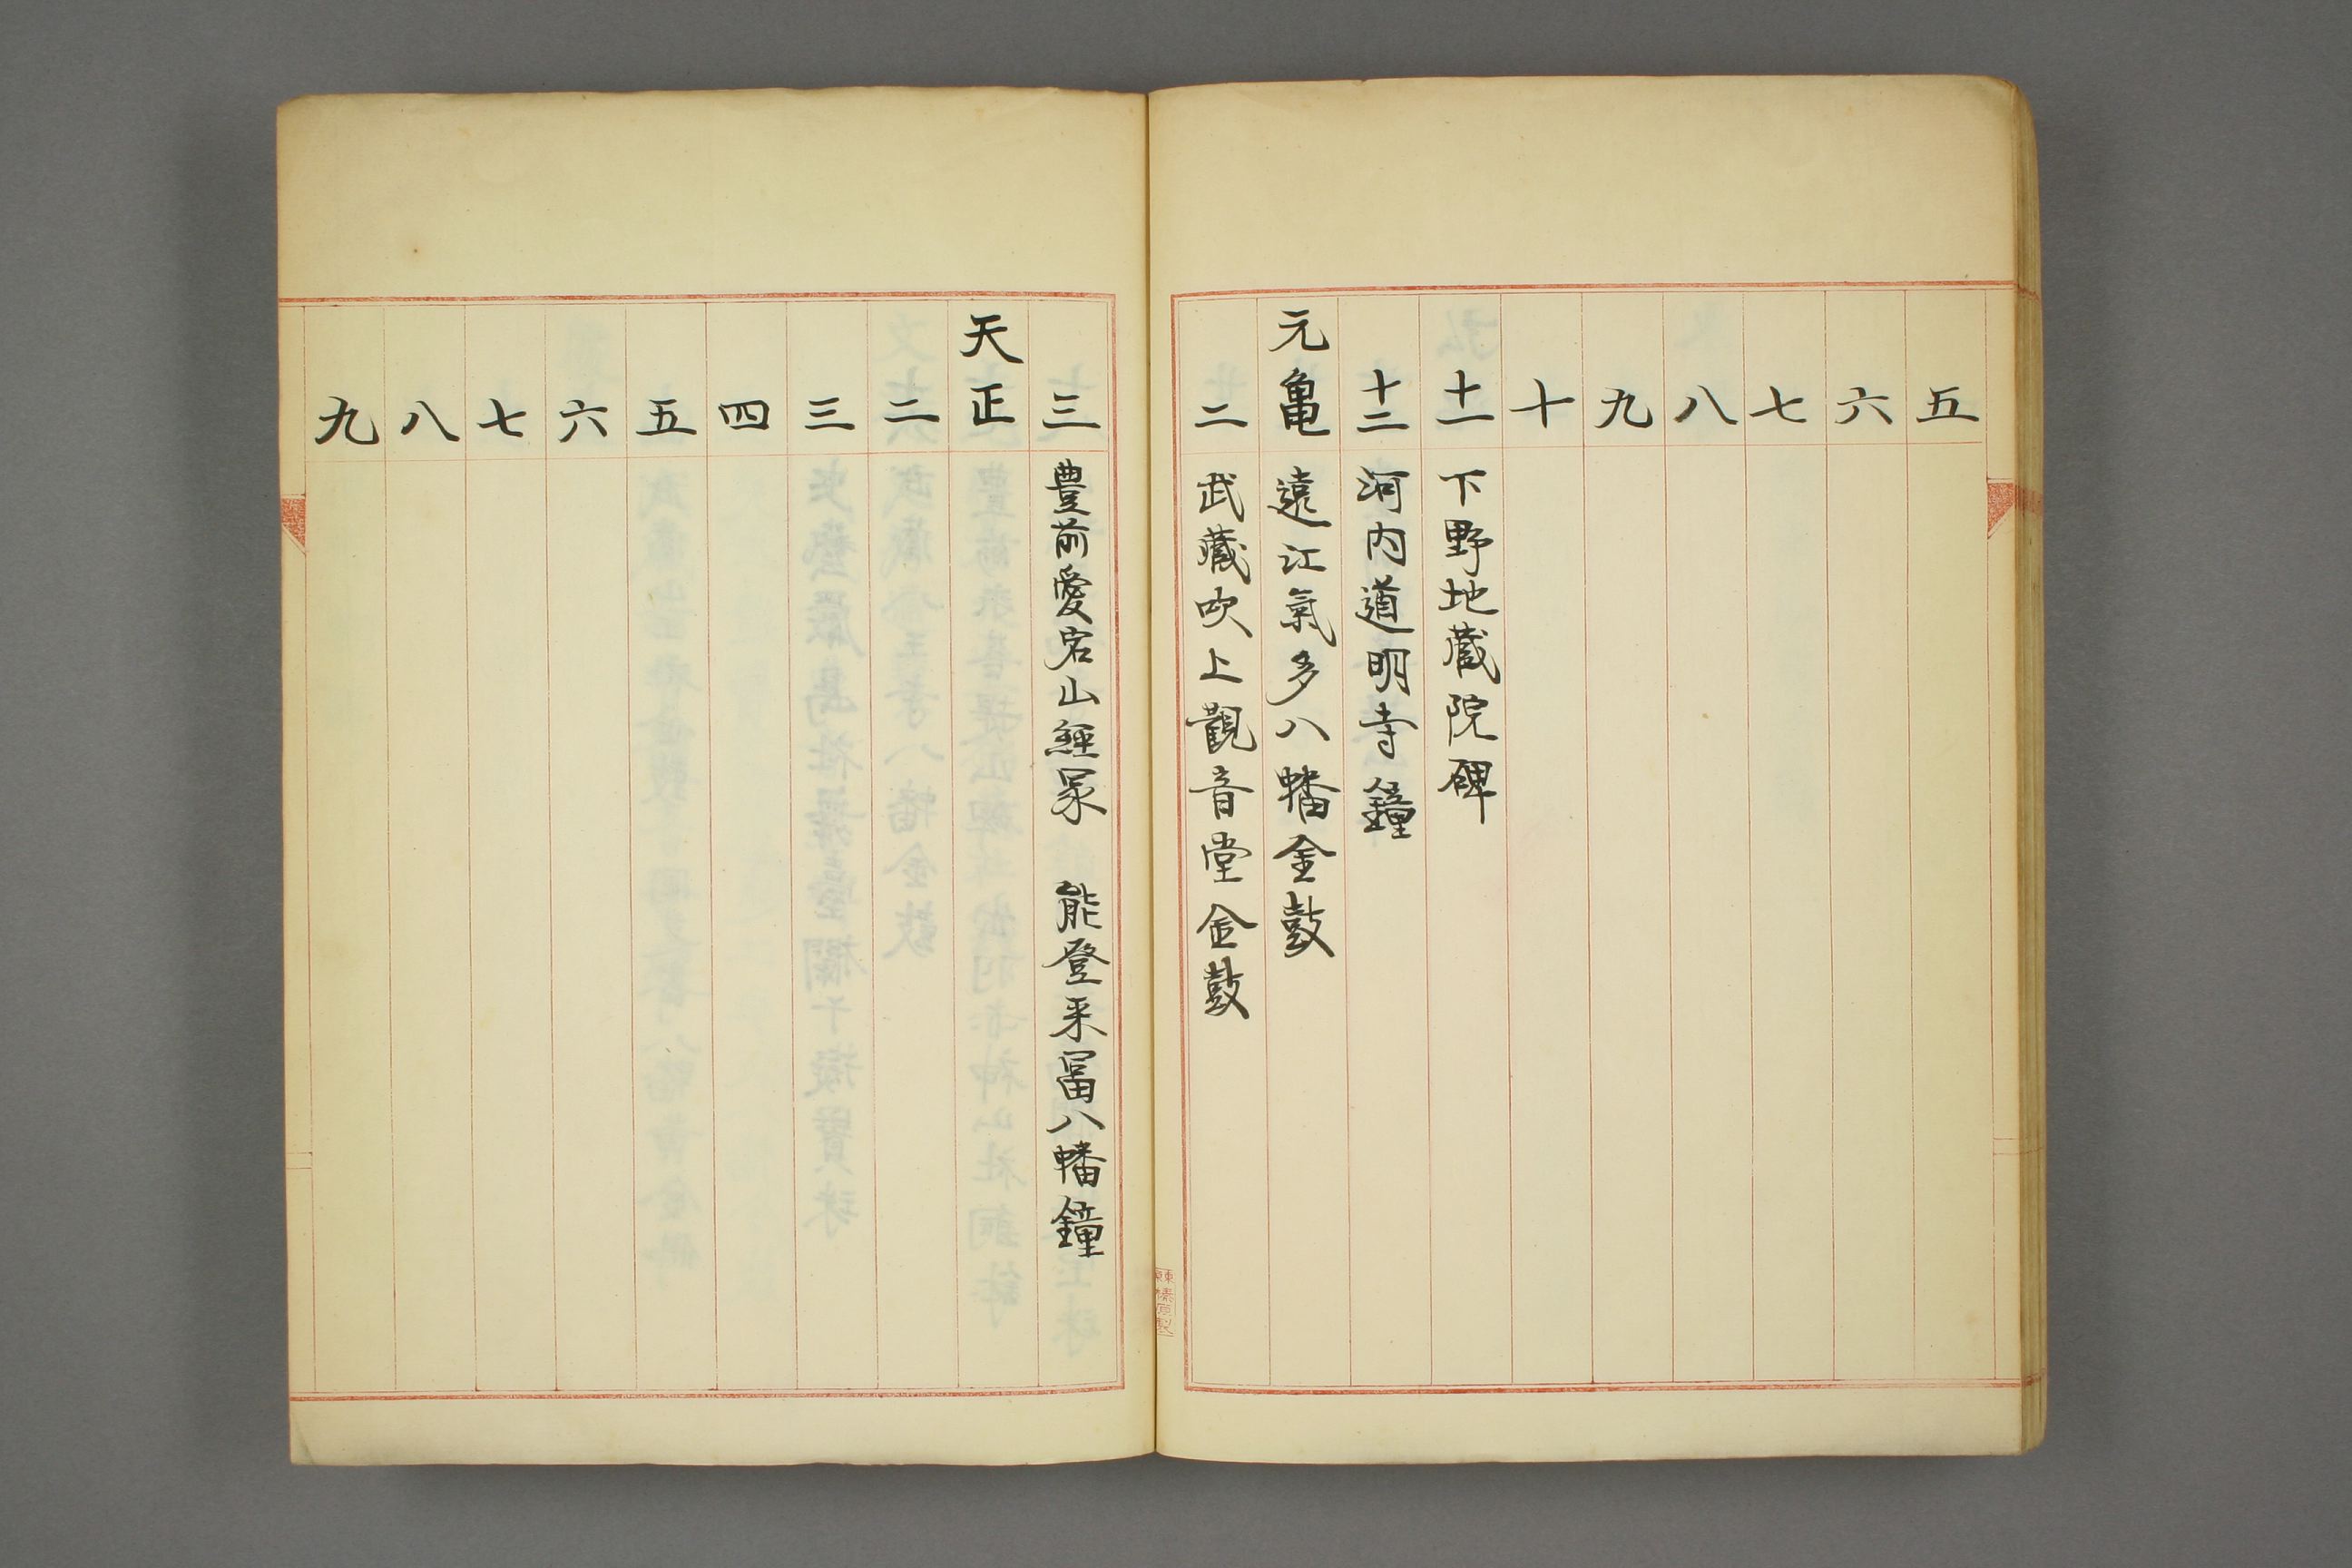 五
六
七
八
九
十
十一 下野地蔵院碑
十二 河内道明寺鐘
元亀 遠江氣多八幡金鼓
二 武蔵吹上觀音堂金鼓
三 豊前愛宕山經冢 能登来冨八幡鐘
天正
二
三
四
五
六
七
八
九